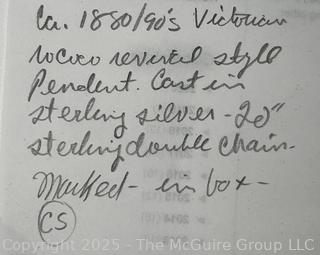 Ca. 1880/90's Victorian
rococo revival style
Pendent. Cast in
sterling silver - 20"
sterling double chain -
Marked - in box -
CS
Copyright 2025 - The McGuire Group LLC